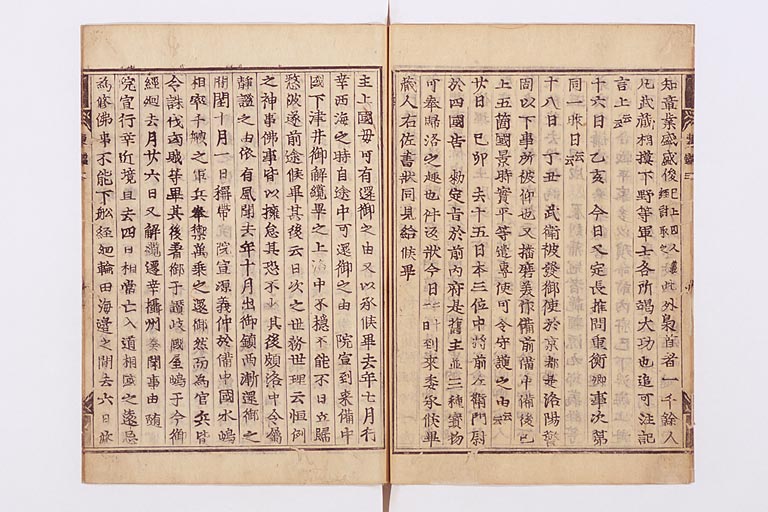 知章業盛盛俊此外梟首者一千餘人
凡武藏相摸下野等軍士各所竭大功也追可注記
言上云々
十六日 乙亥 今日又定長推問重衡卿事次第
同一昨日云々
十八日 丁丑 武衛被發御使於京都是洛陽警
固以下事所被仰也又播磨美作備前備中備後已
上五箇國景時實平等遣專使可令守護之由云々
廿日 己卯 去十五日本三位中將前左衛門尉
於四國告 勅定旨於前内府是舊主並三種寶物
可奉歸洛之趣也件返狀今日 時到來委承候畢
藏人右佐書狀同見給候畢
主上國母可有還御之由又以承候畢去年七月行
幸西海之時自途中可還御之由 院宣到來備中
國下津井御解纜畢之上洛中不穩不能不日立歸
憖被遂前途候畢其後云日次之世務世理云恒例
之神事佛事皆以擁怠其恐不少其後頗洛中令屬
靜謐之由依有風聞去年十月出御鎮西漸還御之
間閏十月一日稱帶 院宣源義仲於備中國水嶋
相率千艘之軍兵奉禦萬乘之還御然而爲官兵皆
令誅伐凶賊等畢其後着御于讃岐國屋嶋于今御
經廻去月廿六日又解纜遷幸攝州奏聞事由隨
院宣行幸近境且去四日相當亡入道相國之遠忌
爲修佛事不能下船經廻輪田海邊之間去六日修